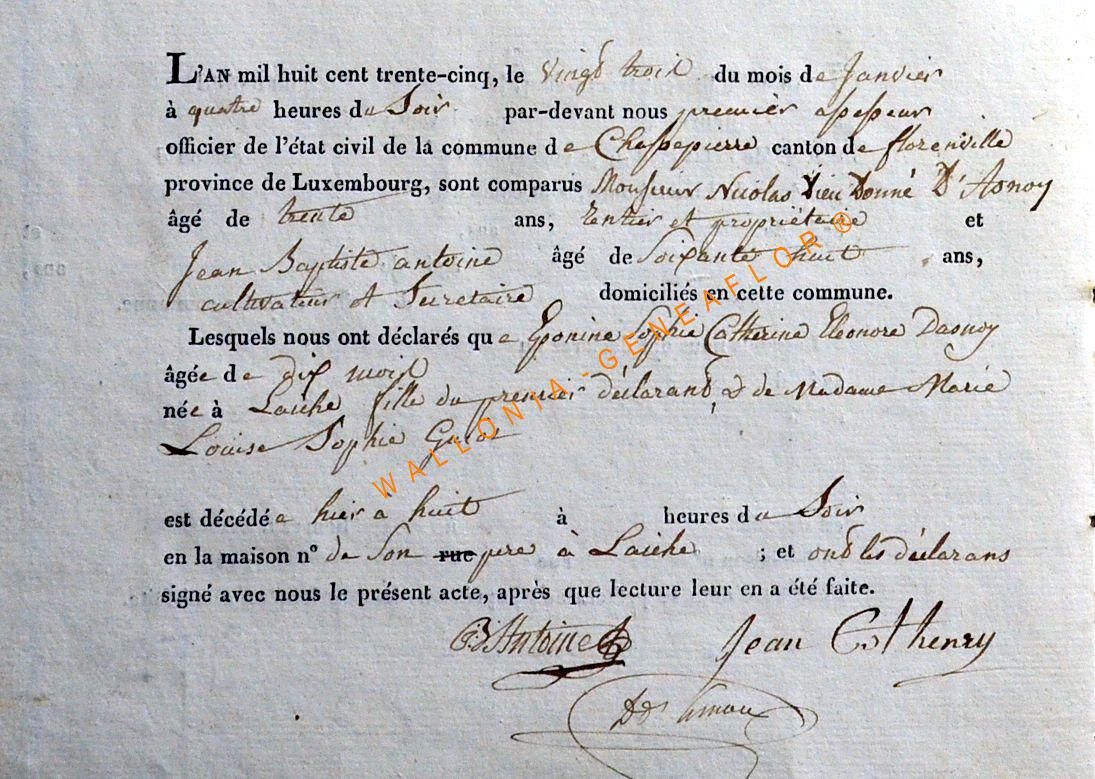 L'AN mil huit cent trente-cinq, le vingt trois du mois de Janvier
à quatre heures du Soir par-devant nous premier assesseur
officier de l'état civil de la commune de Chassepierre canton de florenville
province de Luxembourg, sont comparus Monsieur Nicolas Dieu Donné D'Asnoy
âgé de trente ans, Rentier et propriétaire et
Jean Baptiste antoine âgé de Soixante huit ans,
cultivateur et Secretaire domiciliés en cette commune.
Lesquels nous ont déclarés que Eponine Sophie Catherine Eleonore Dasnoy
âgée de dix mois
née à Laiche fille du premier déclarant, & de Madame Marie
Louise Sophie
est décédée hier à huit à heures du Soir
en la maison n° de Son rue pere à Laiche ; et ont les déclarans
signé avec nous le présent acte, après que lecture leur en a été faite.
JB Antoine Jean henry
WALLONIA-GENEAFLOR®